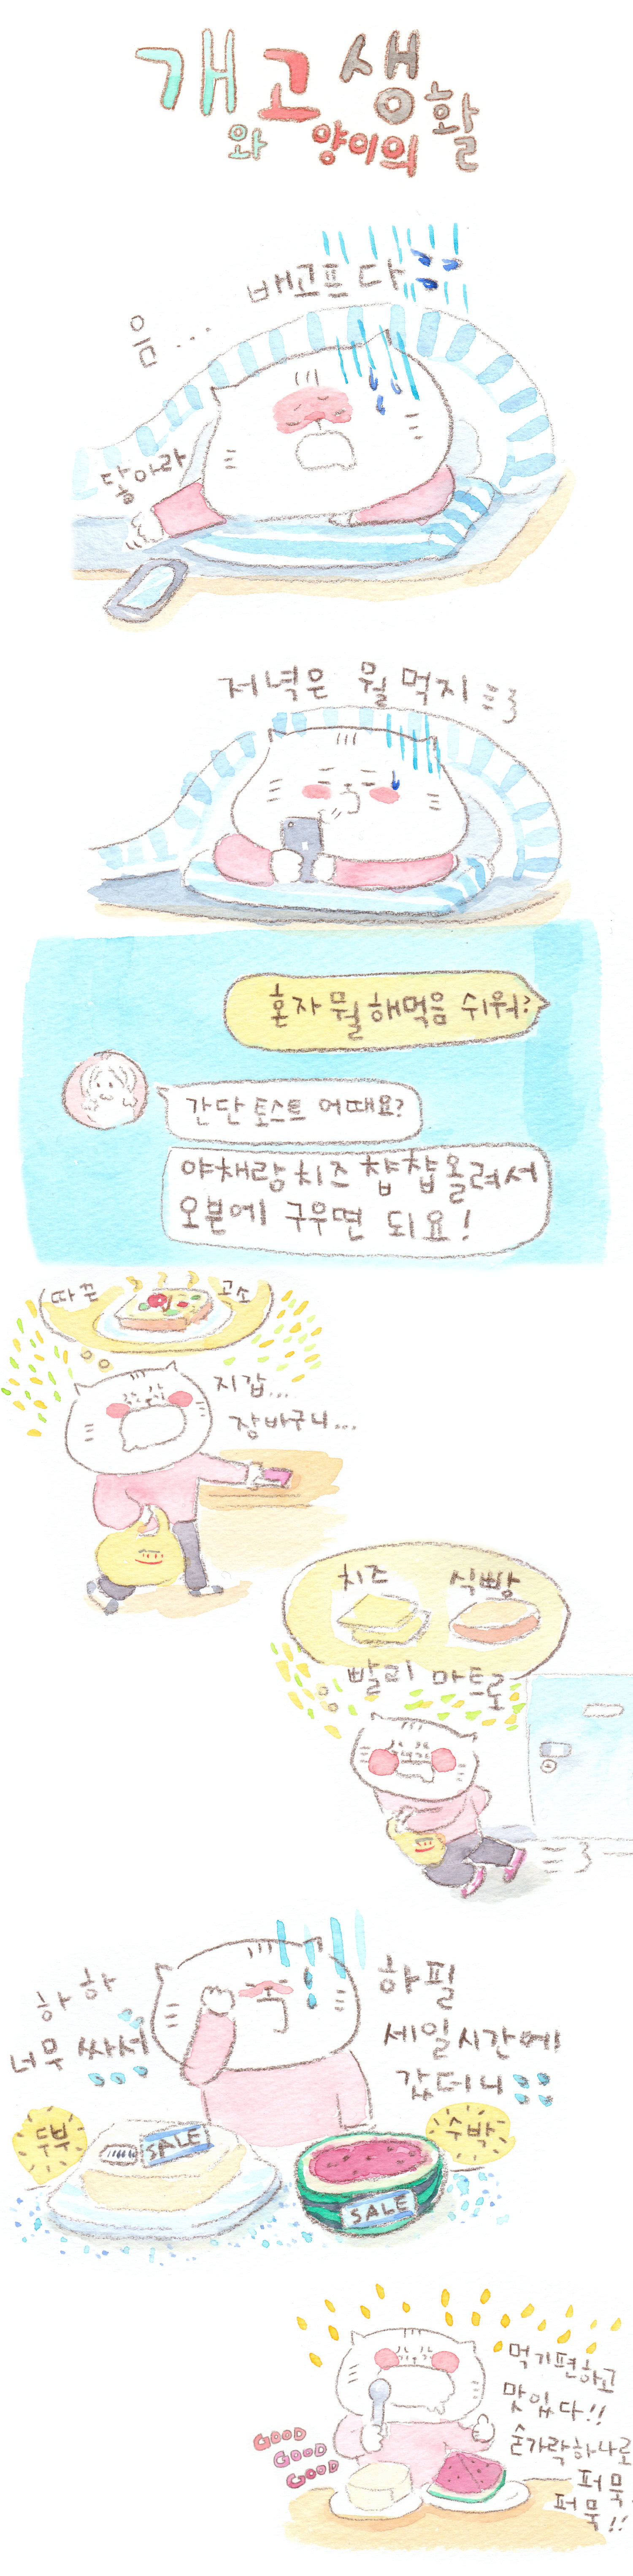 개고생활
와 양이의
배고프다
음...
닿아라
저녁은 뭘 먹지
혼자 뭘 해먹음 쉬워?
간단 토스트 어때요?
야채랑 치즈 챱챱 올려서
오븐에 구우면 되요!
따끈 고소
지갑...
장바구니...
치즈 식빵
빨리 마트로
하하
너무 싸서
하필
세일시간에
갔더니
두부
SALE
수박
SALE
먹기편하고
맛있다!!
숟가락하나로
퍼묵
퍼묵!!
GOOD
GOOD
GOOD